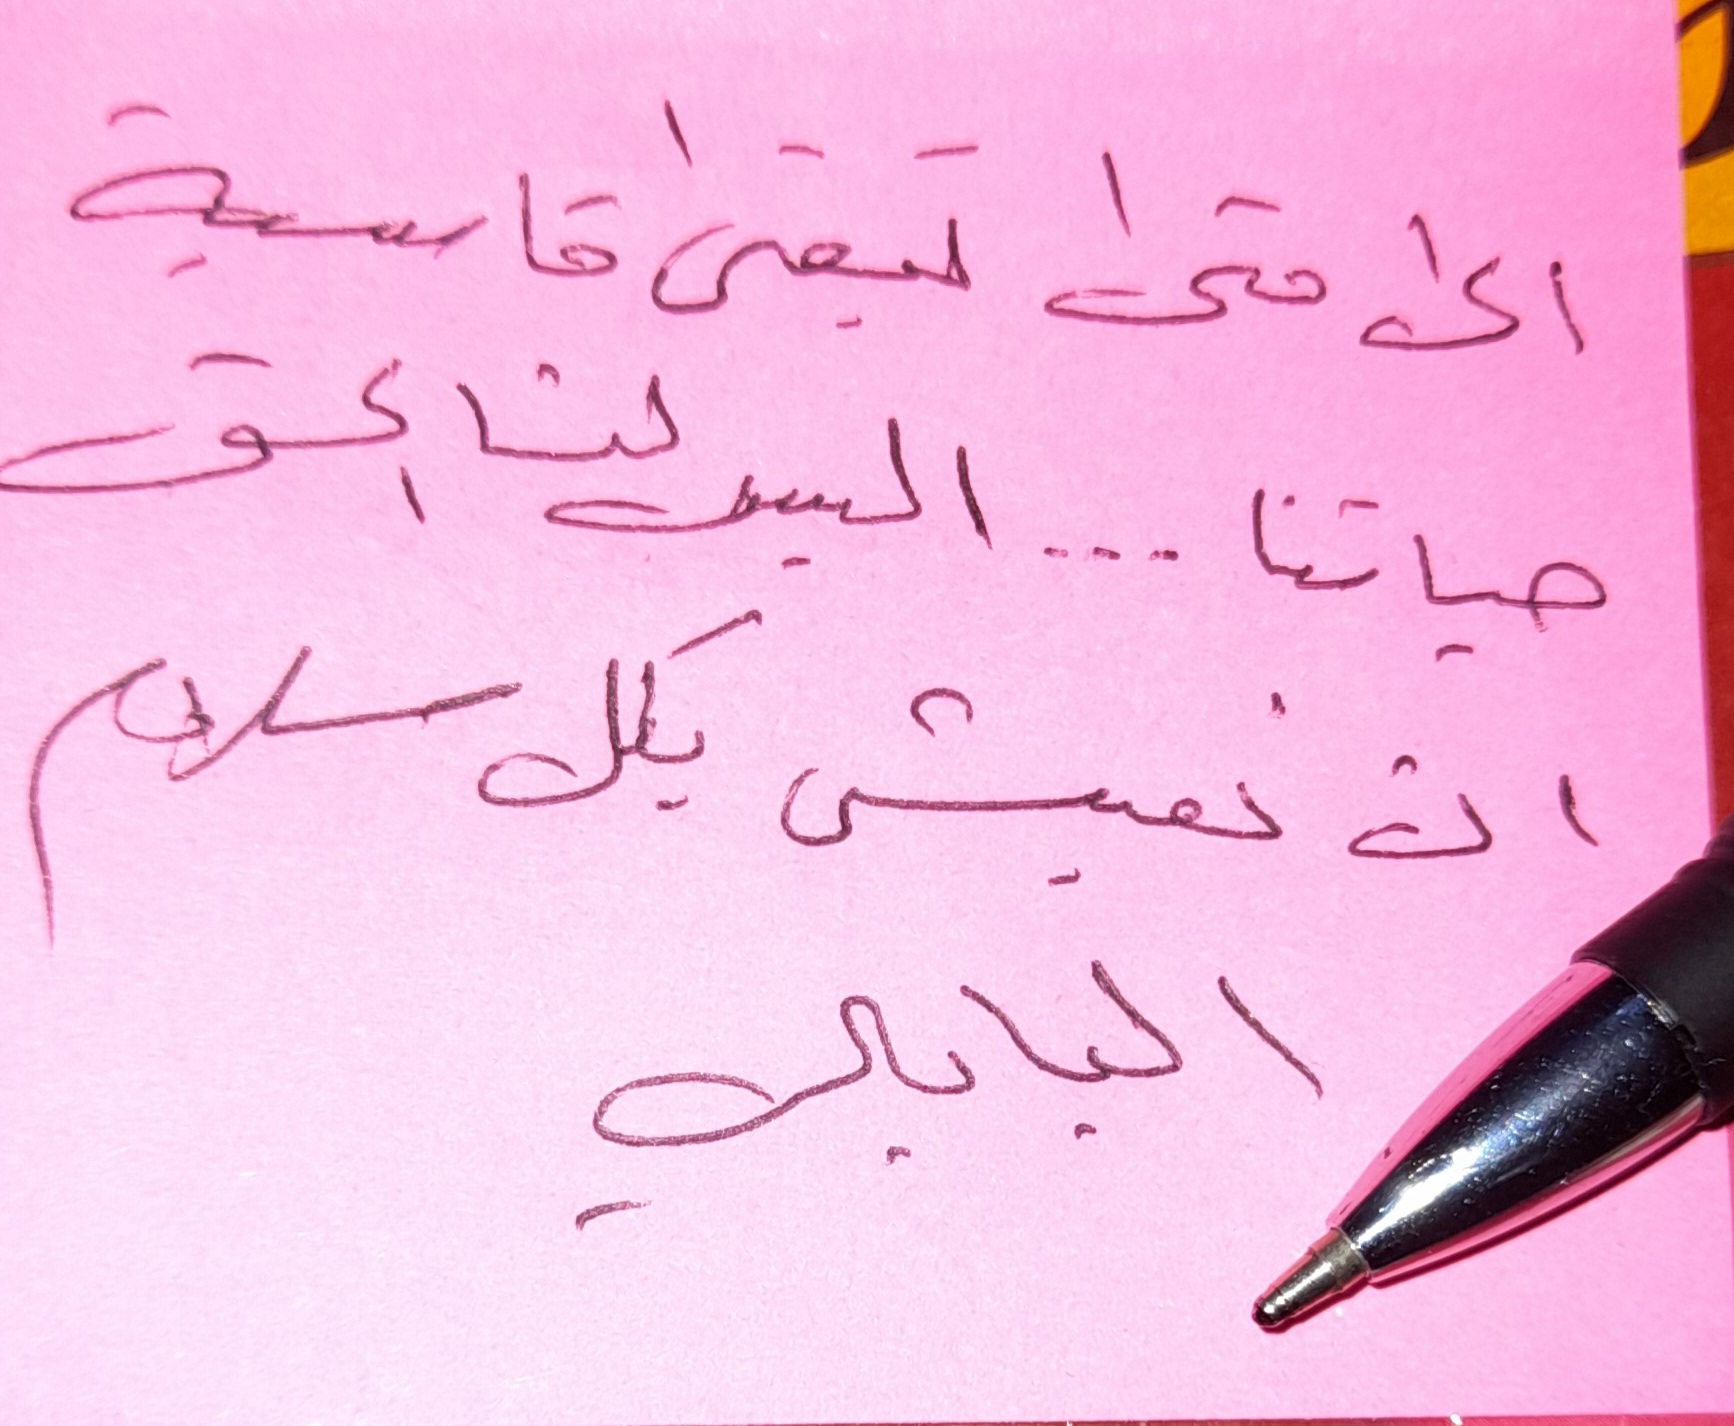 الى متى تبقى قاسية
حياتنا ... اليس لنا الحق
ان نعيش بكل سلام
البابلي